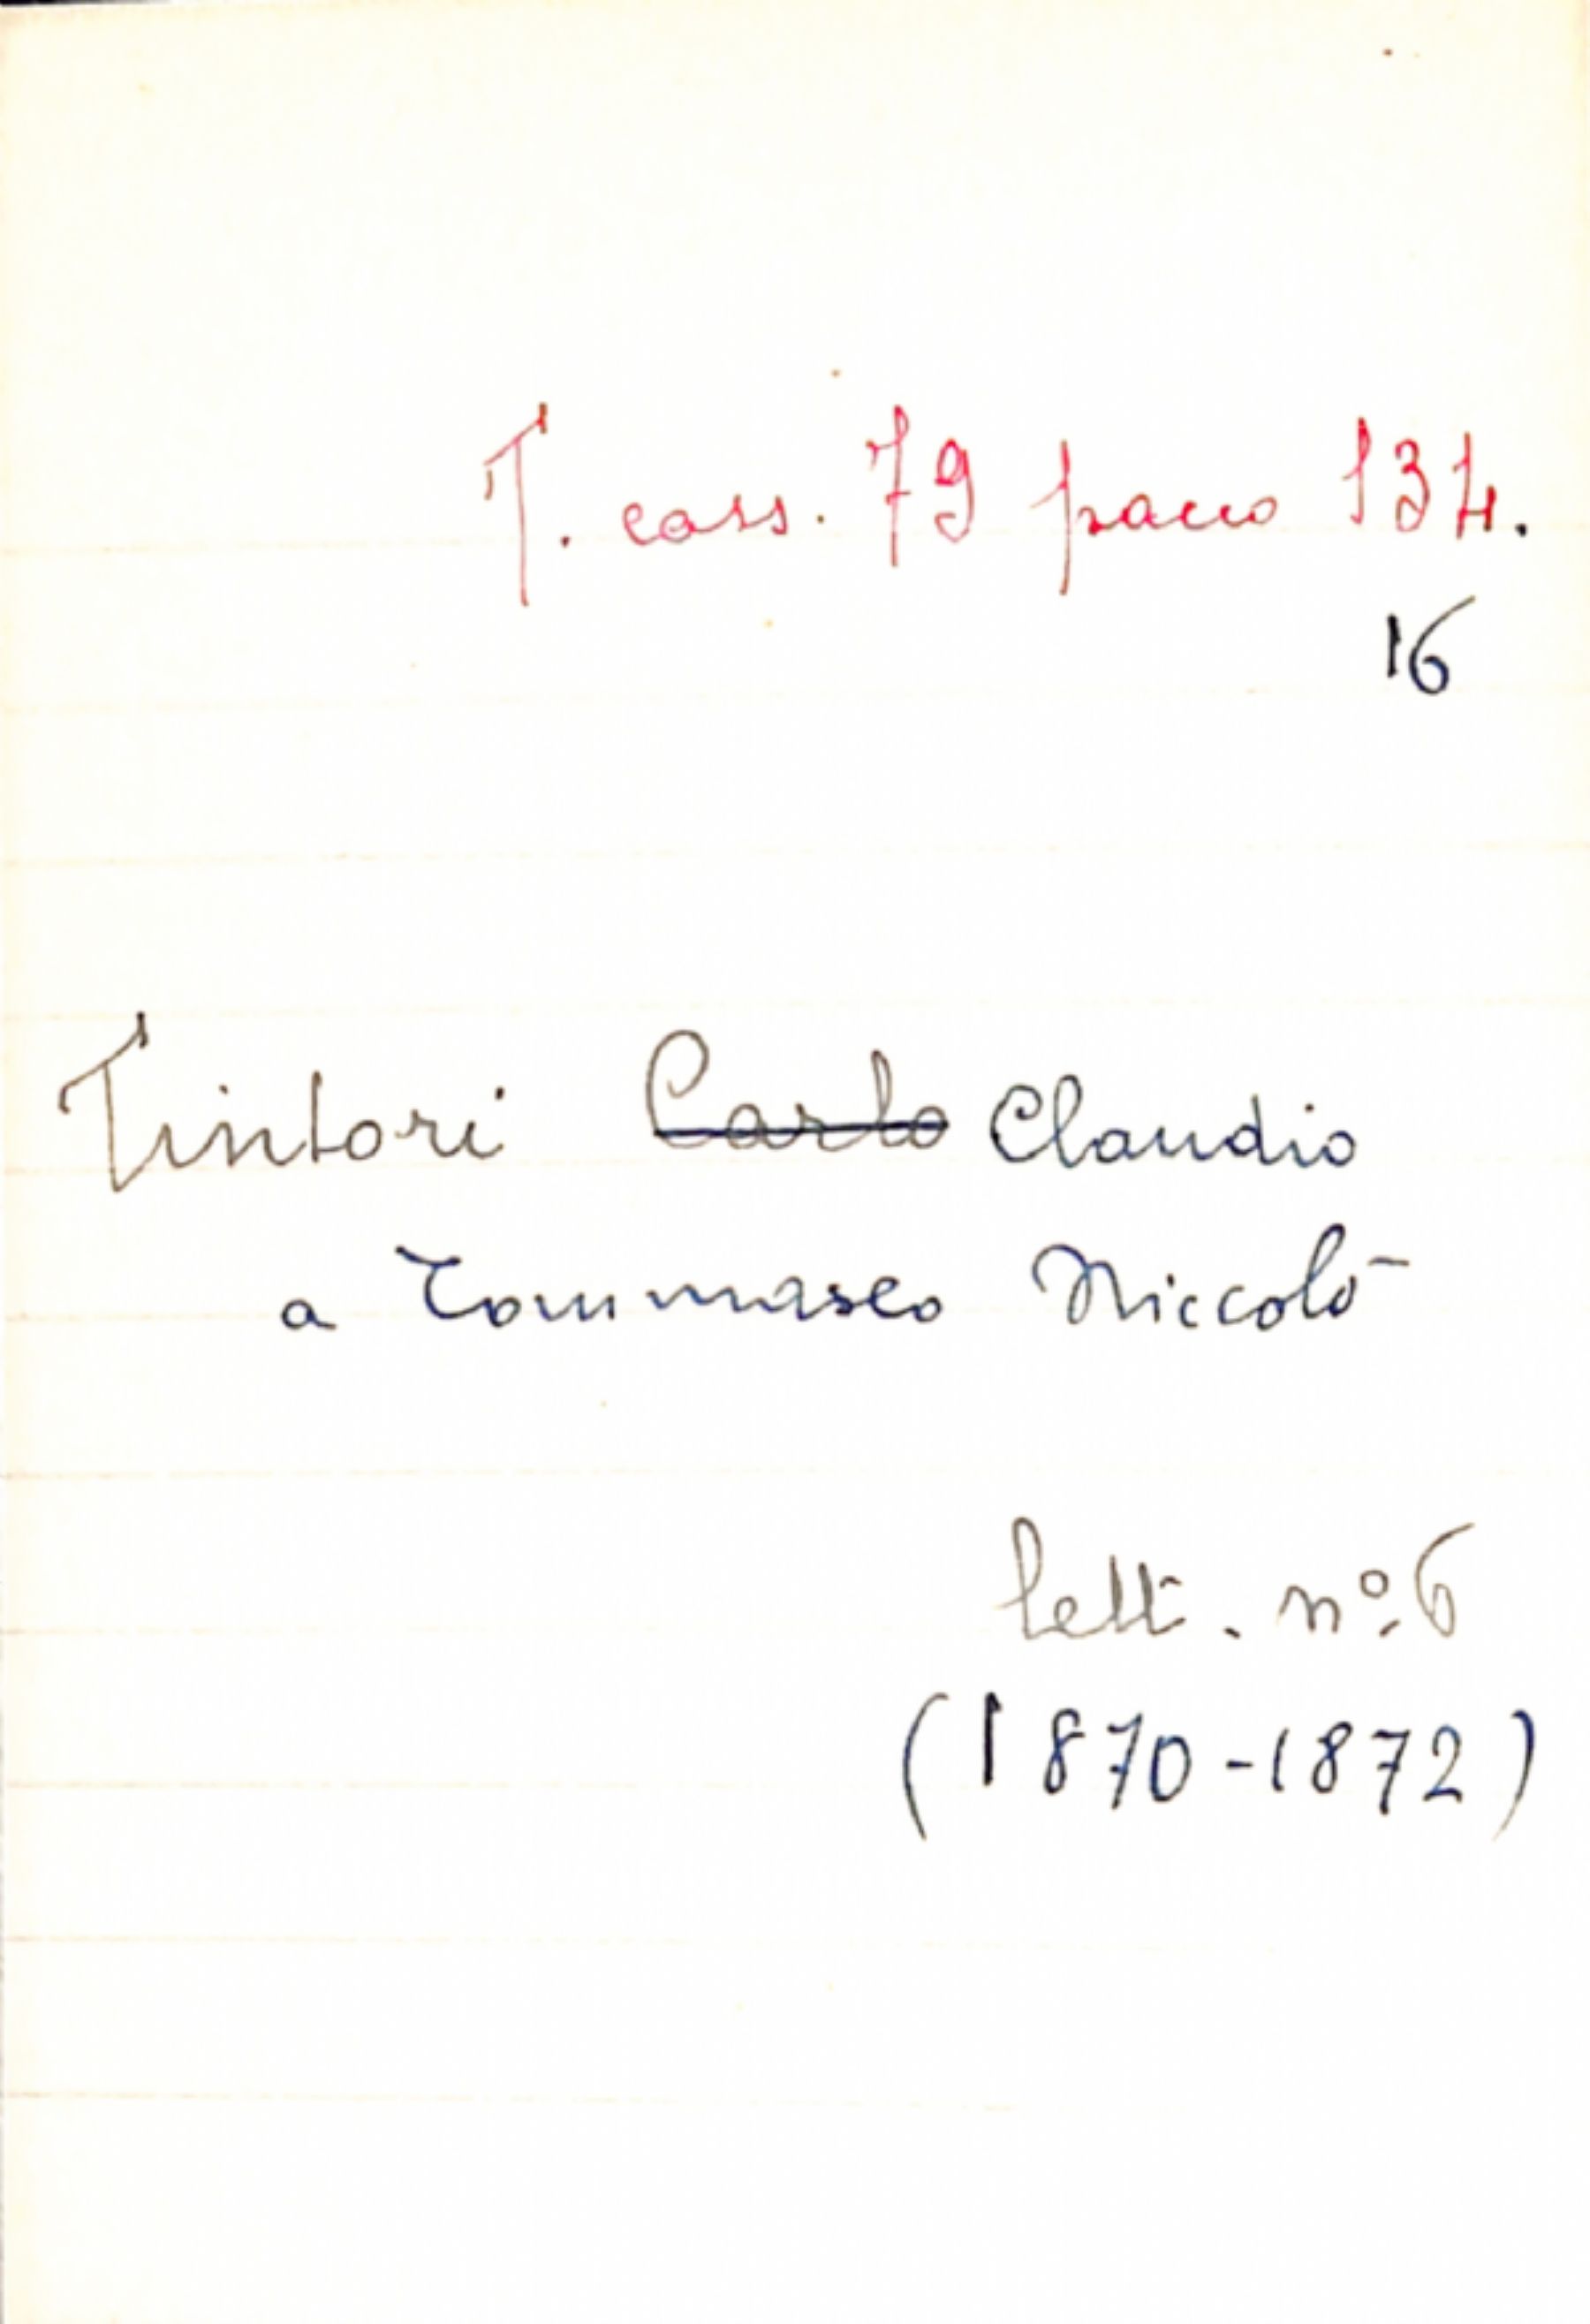 T. cass. 79 pacco 134.
16
Tintori Carlo Claudio
a Tommaseo Niccolò
lett. nº 6
(1870-1872)